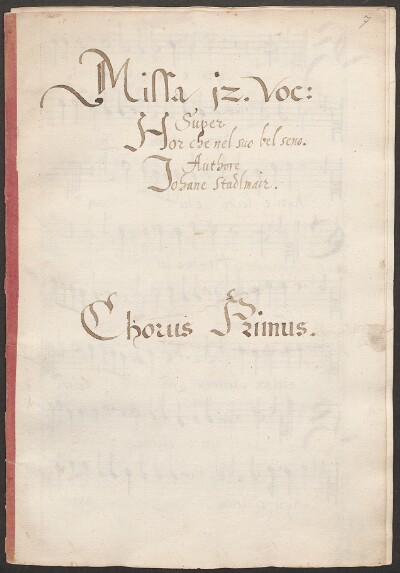 7
Missa jz. Voc:
Super
Hor che nel suo bel seno.
Authore
Johane Stadlmair.
Chorus Primus.